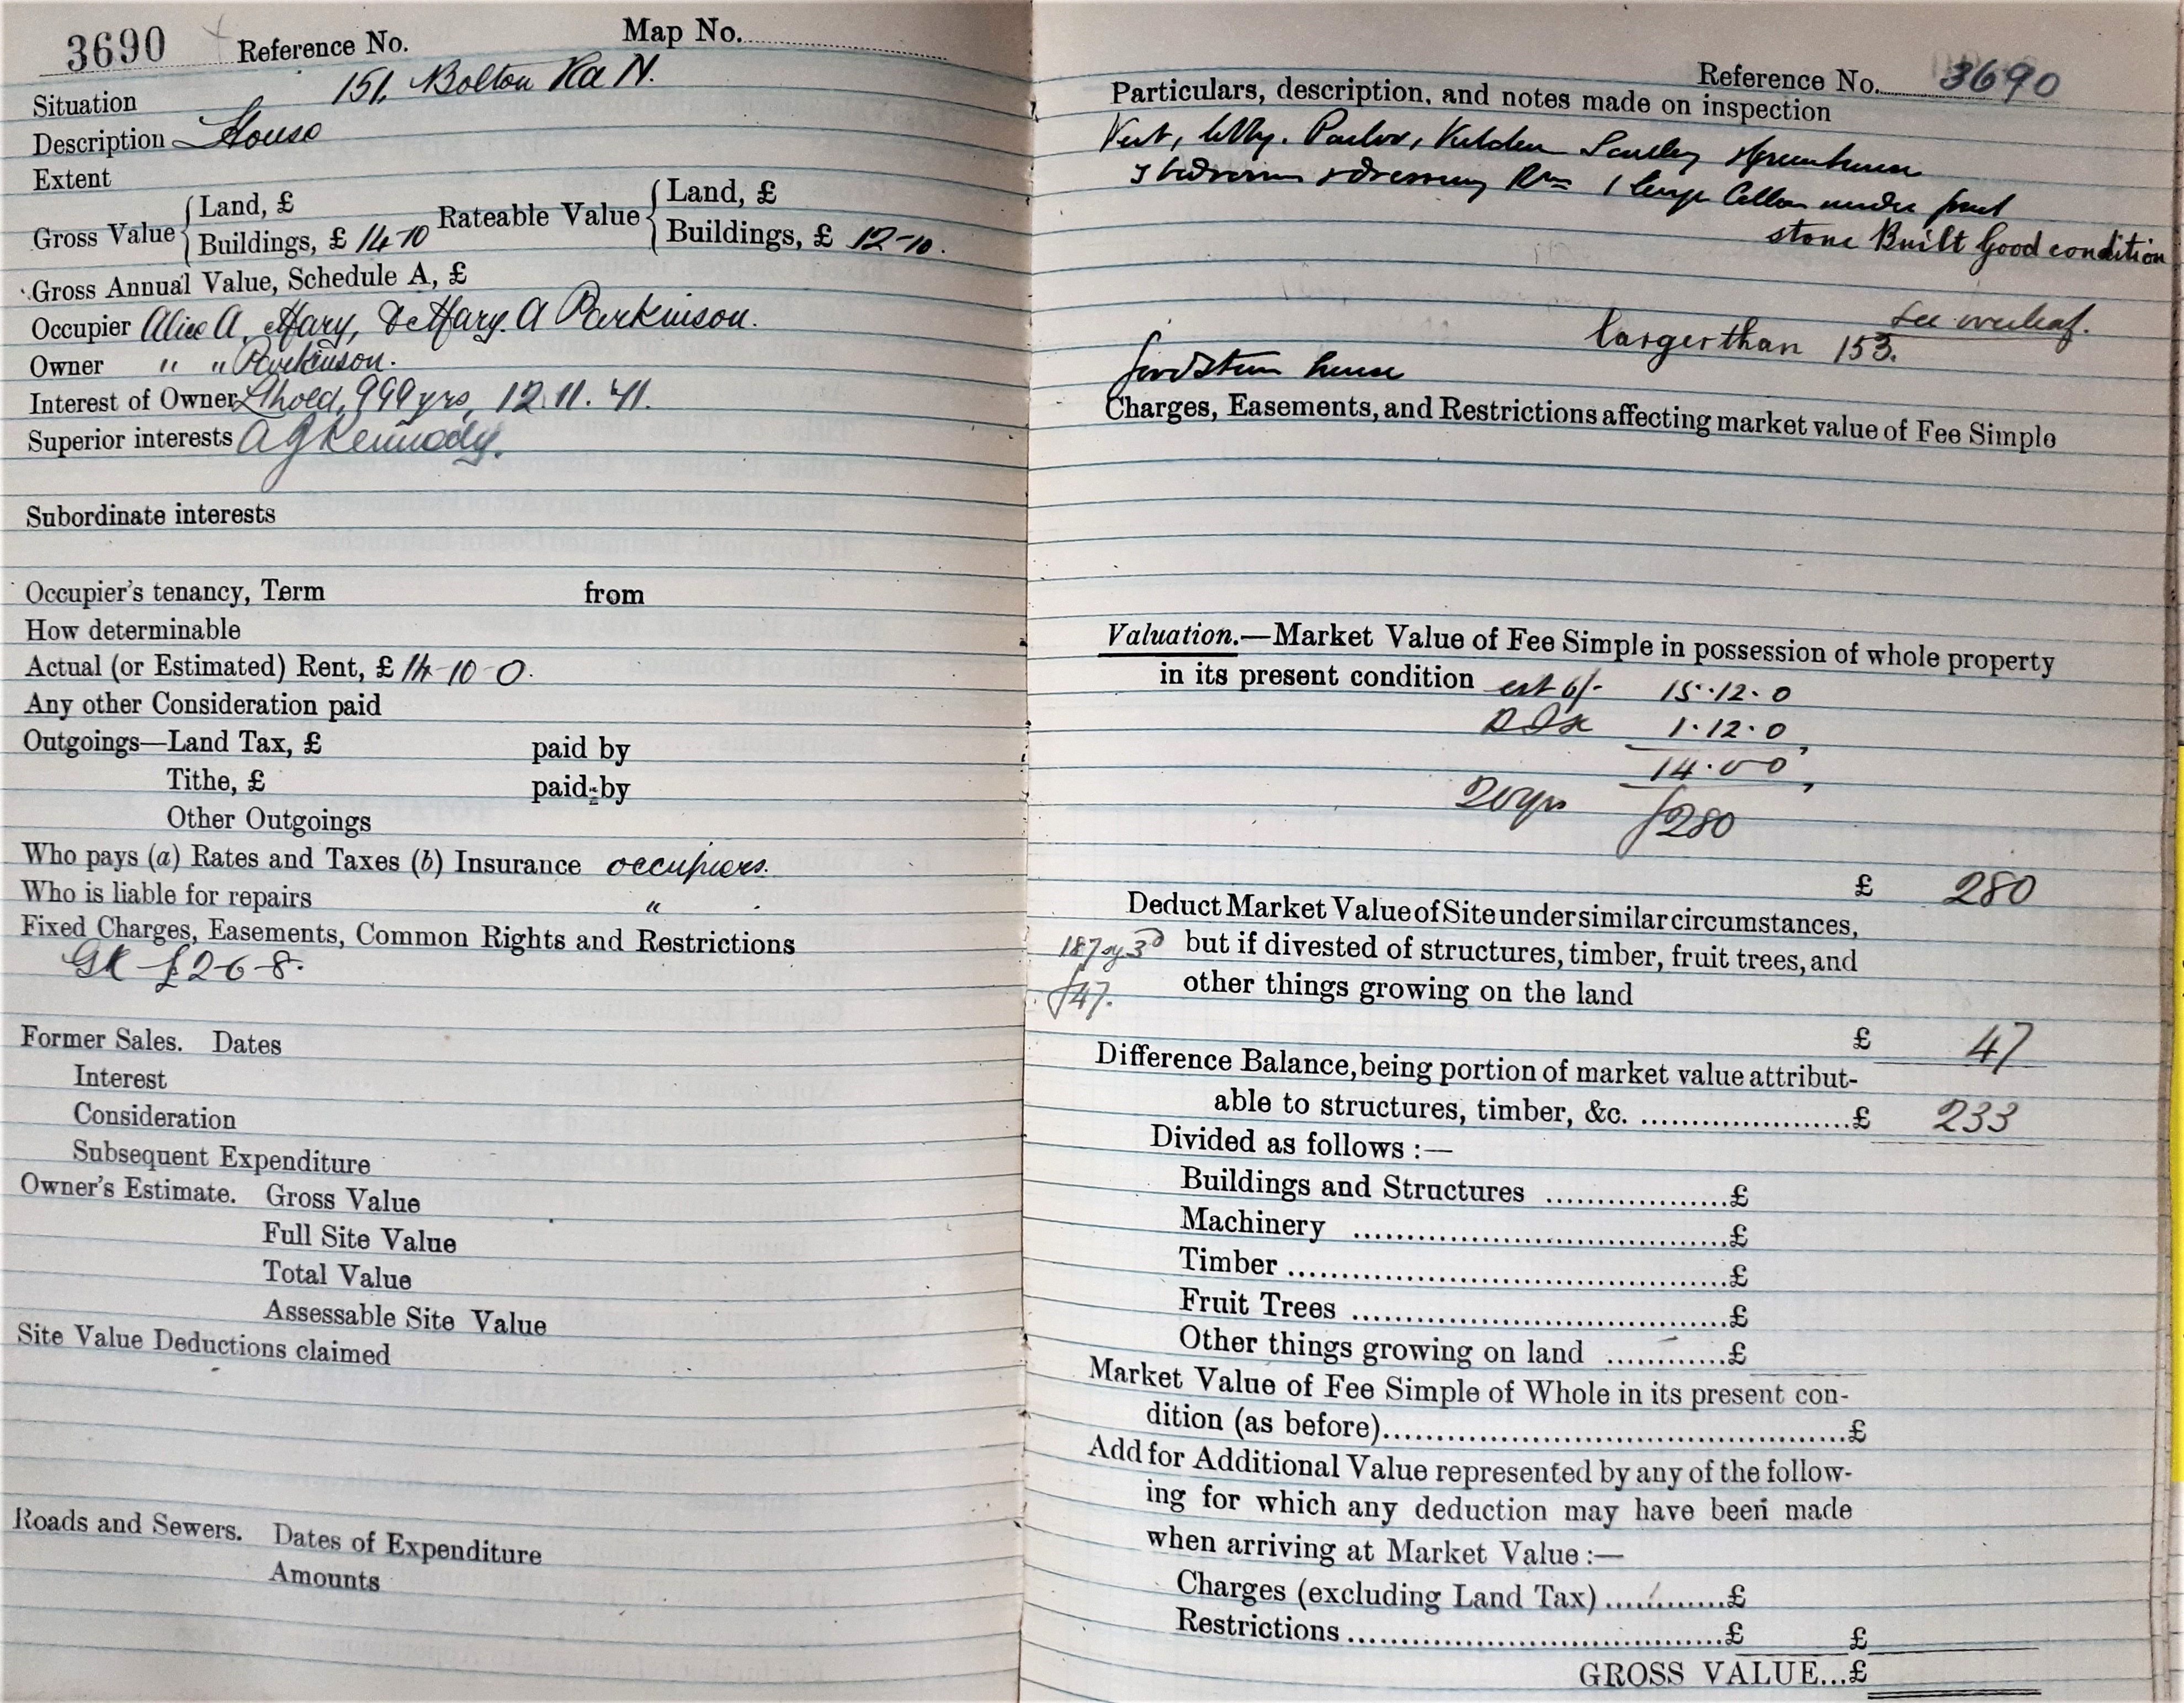 3690 Reference No. Map No.
Situation 151, Bolton Rd N.
Description House
Extent
Gross Value { Land, £
Buildings, £ 14-10
Rateable Value { Land, £
Buildings, £ 12-10.
Gross Annual Value, Schedule A, £
Occupier Alice A, Mary, & Mary. A Parkinson.
Owner " " Parkinson.
Interest of Owner Lhold, 999 yrs, 12.11.41.
Superior interests A G Kennedy.
Subordinate interests
Occupier's tenancy, Term from
How determinable
Actual (or Estimated) Rent, £ 14-10-0.
Any other Consideration paid
Outgoings—Land Tax, £ paid by
Tithe, £ paid by
Other Outgoings
Who pays (a) Rates and Taxes (b) Insurance occupiers.
Who is liable for repairs "
Fixed Charges, Easements, Common Rights and Restrictions
GR £2-6-8.
Former Sales. Dates
Interest
Consideration
Subsequent Expenditure
Owner's Estimate. Gross Value
Full Site Value
Total Value
Assessable Site Value
Site Value Deductions claimed
Roads and Sewers. Dates of Expenditure
Amounts
Reference No. 3690
Particulars, description, and notes made on inspection
Vest, lobby. Parlor, Kitchen Scullery & Greenhouse
3 bedrooms & dressing Rm 1 large Cellar under front
stone Built Good condition
see overleaf.
larger than 153.
house
Charges, Easements, and Restrictions affecting market value of Fee Simple
Valuation.—Market Value of Fee Simple in possession of whole property
in its present condition est 6/- 15.12.0
1.12.0
14.0 0
20 yrs £280
£ 280
Deduct Market Value of Site under similar circumstances,
187 3d but if divested of structures, timber, fruit trees, and
£47. other things growing on the land
£ 47
Difference Balance, being portion of market value attribut-
able to structures, timber, &c. ....................£ 233
Divided as follows :—
Buildings and Structures .................£
Machinery ..................................£
Timber ........................................£
Fruit Trees ..................................£
Other things growing on land ............£
Market Value of Fee Simple of Whole in its present con-
dition (as before)..........................................£
Add for Additional Value represented by any of the follow-
ing for which any deduction may have been made
when arriving at Market Value :—
Charges (excluding Land Tax) ............£
Restrictions ..................................£ £
GROSS VALUE...£